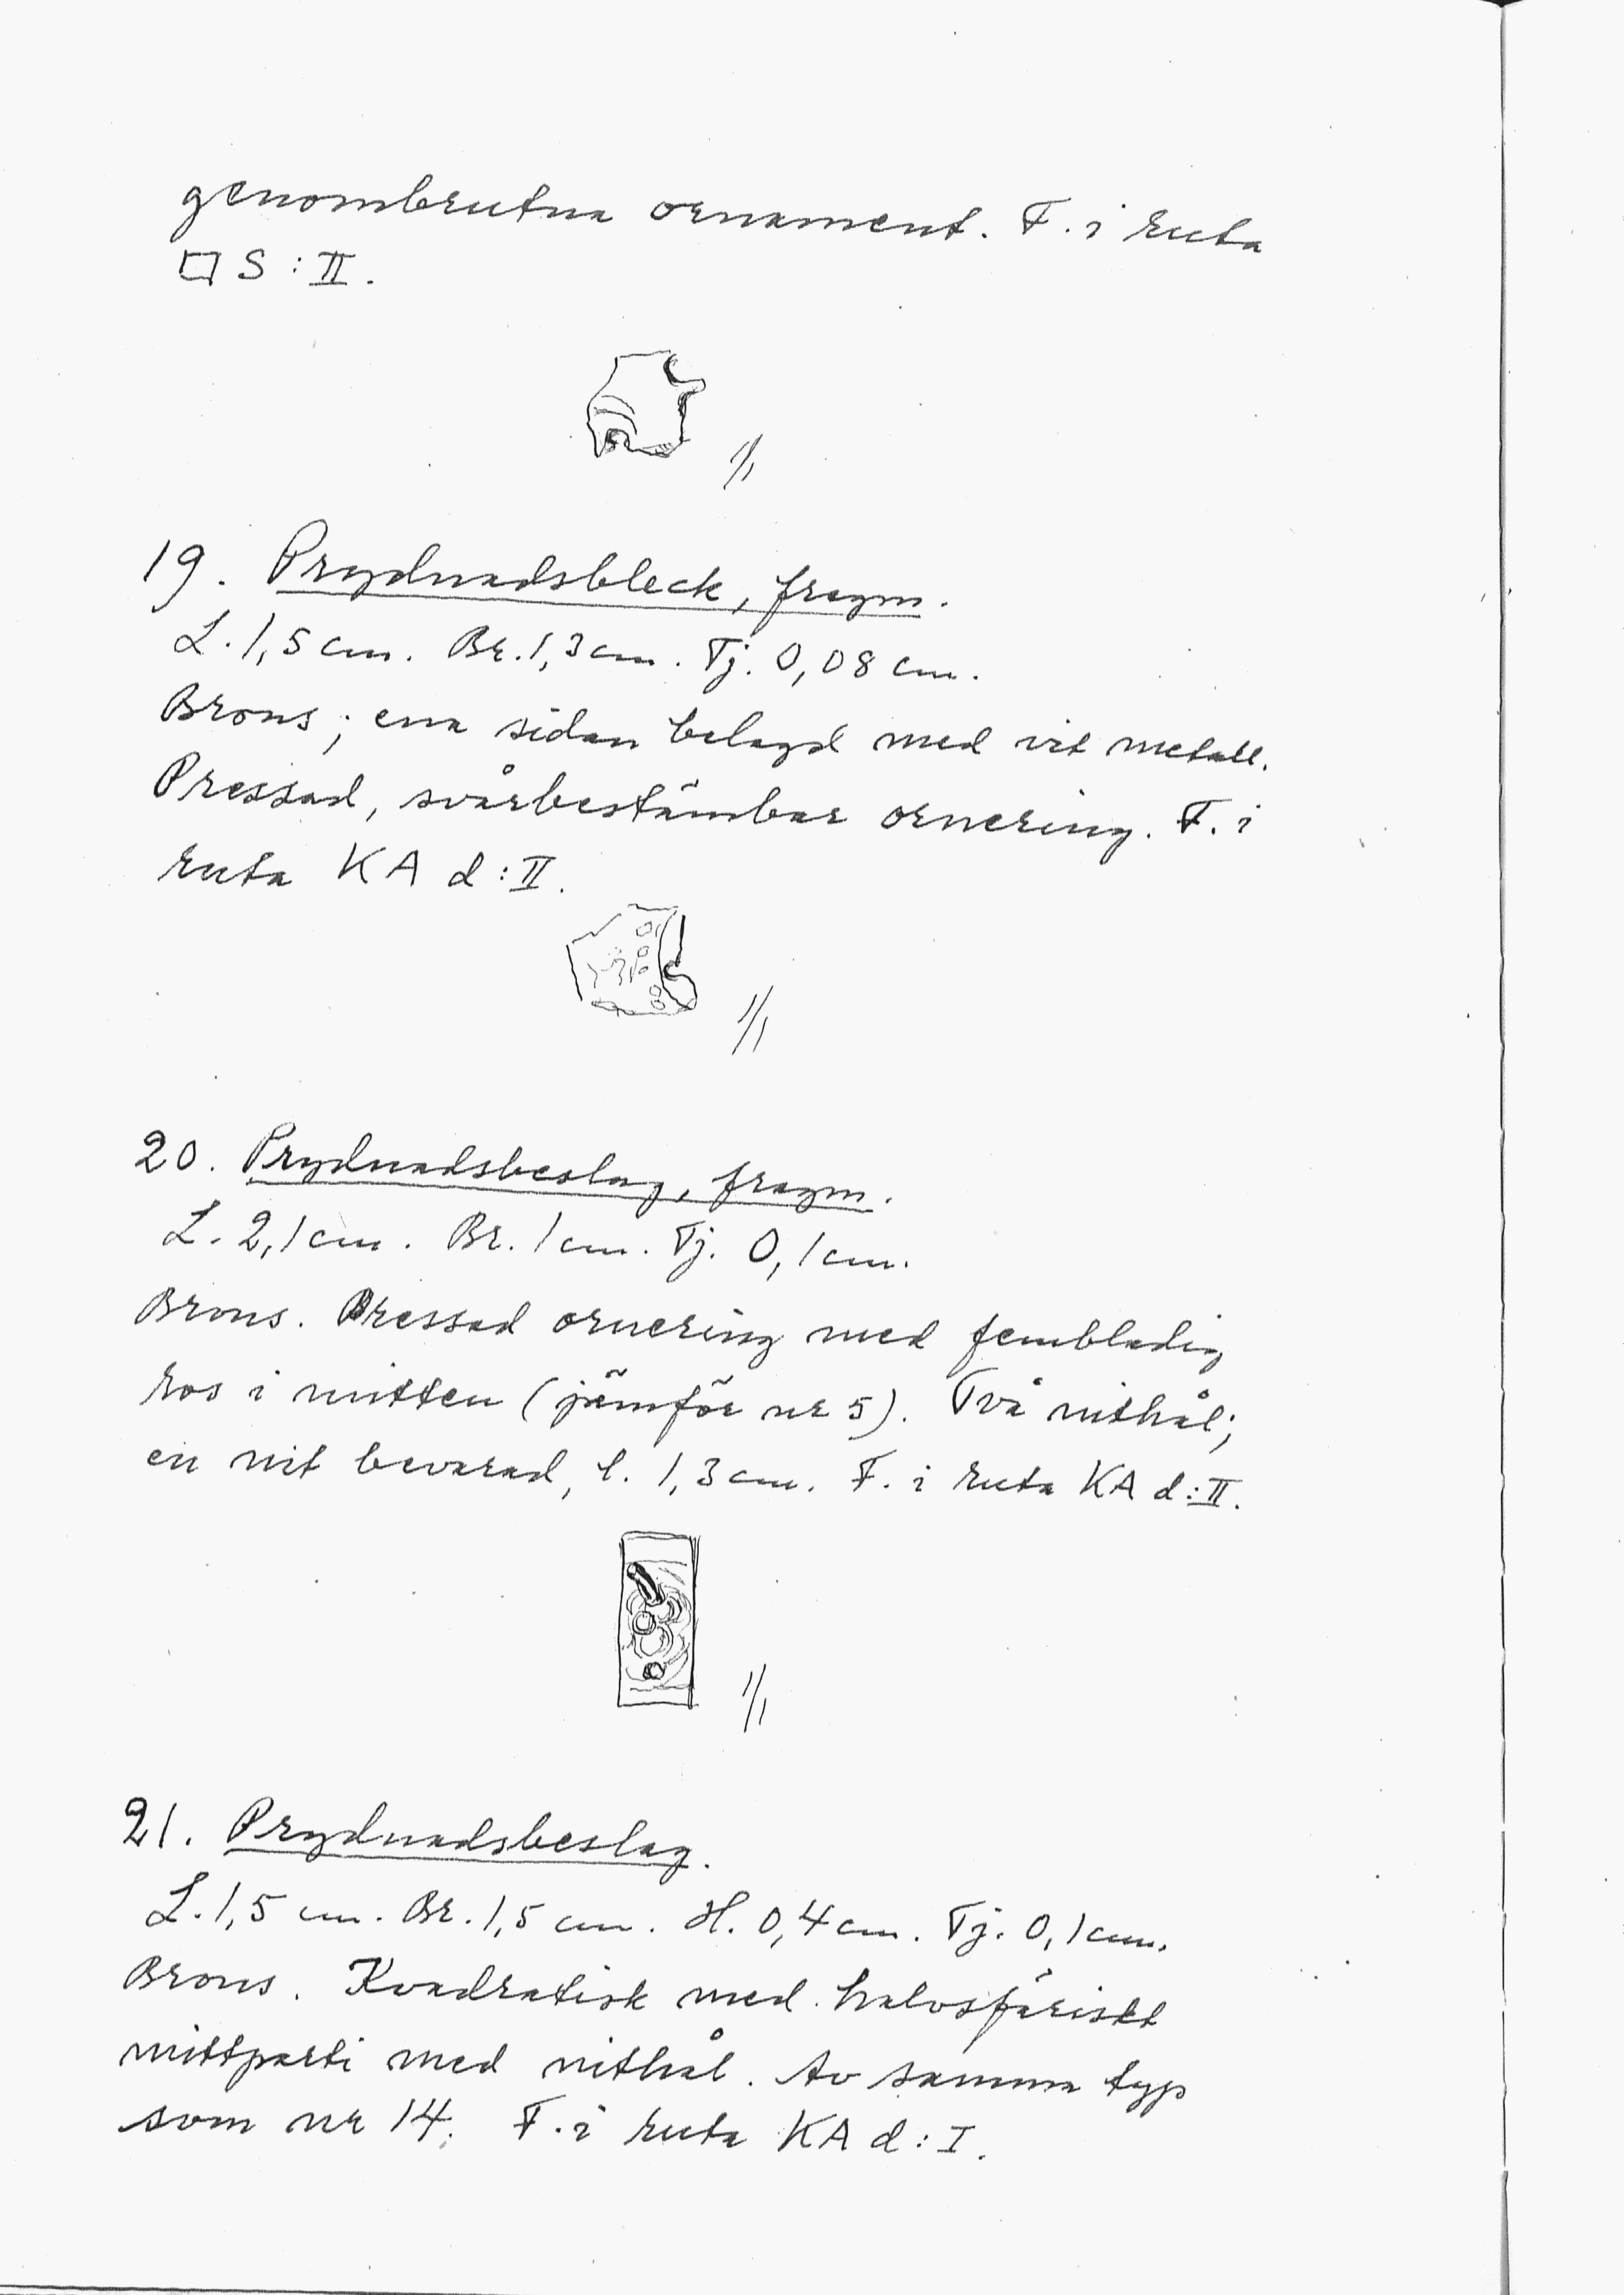 genombrutna ornament. F. i ruta
□ S : II.
1/1
19. Prydnadsbleck, fragm.
L. 1,5 cm. Br. 1,3 cm. Tj. 0,08 cm.
Brons; ena sidan belagd med vit metall.
Pressad, svårbestämbar ornering. F. i
ruta KA d : II.
1/1
20. Prydnadsbeslag, fragm.
L. 2,1 cm. Br. 1 cm. Tj. 0,1 cm.
Brons. Pressad ornering med fembladig
ros i mitten (jämför nr 5). Två nithål;
en nit bevarad, l. 1,3 cm. F. i ruta KA d : II.
1/1
21. Prydnadsbeslag.
L. 1,5 cm. Br. 1,5 cm. H. 0,4 cm. Tj. 0,1 cm.
Brons. Kvadratisk med halvsfäriskt
mittparti med nithål. Av samma typ
som nr 14. F. i ruta KA d : I.